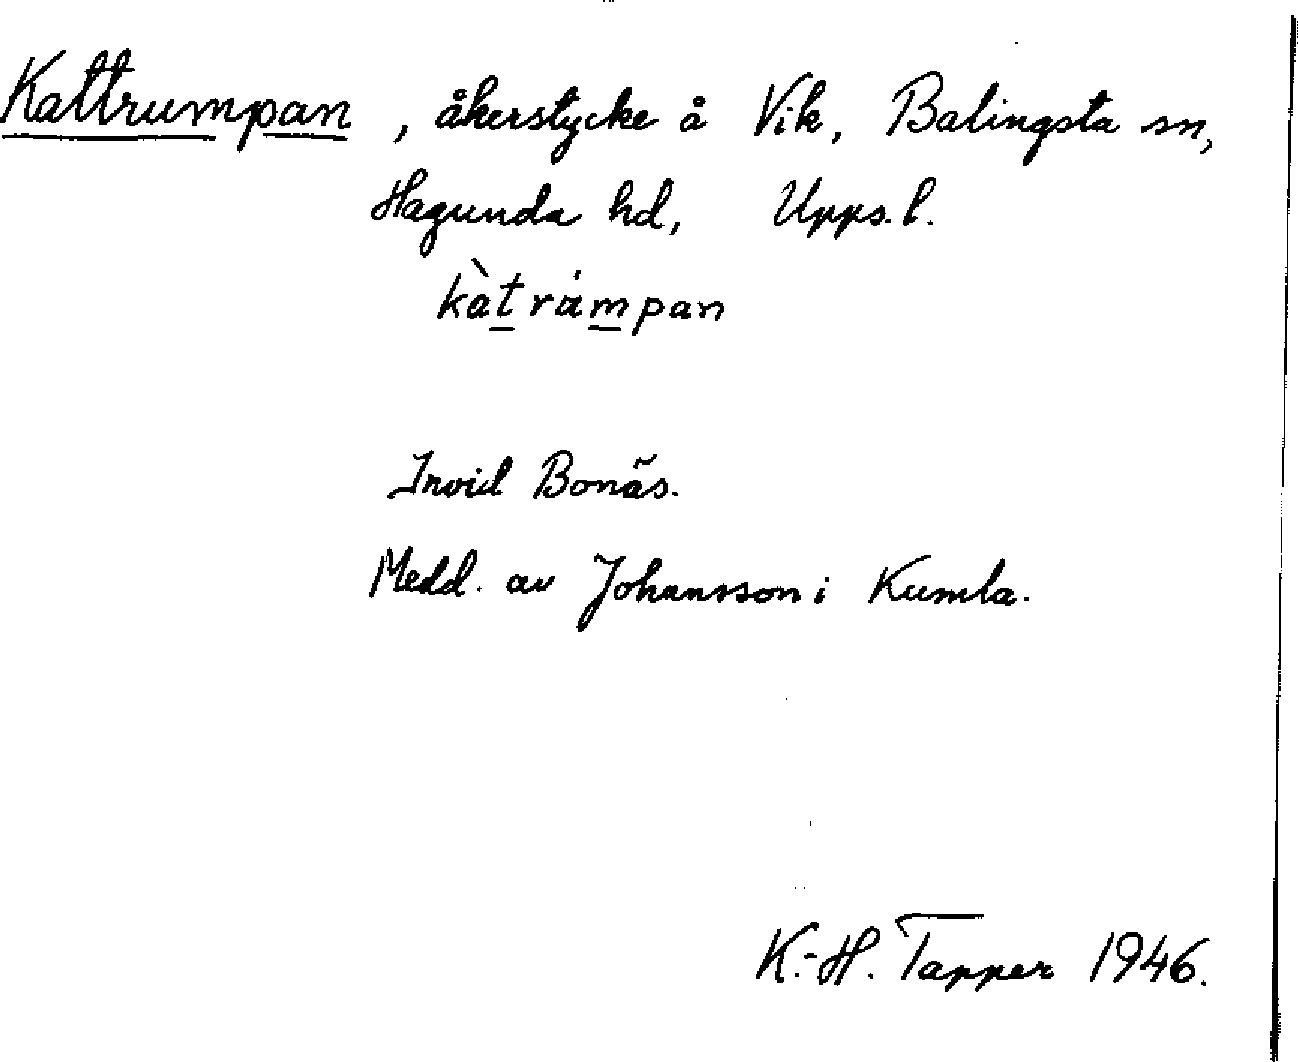 Kattrumpan, åkerstycke å Vik, Balingsta sn,
Hagunda hd, Upps. l.
kàtrùmpan
Invid Bonäs.
Medd. av Johansson i Kumla.
K.-H. Tapper 1946.